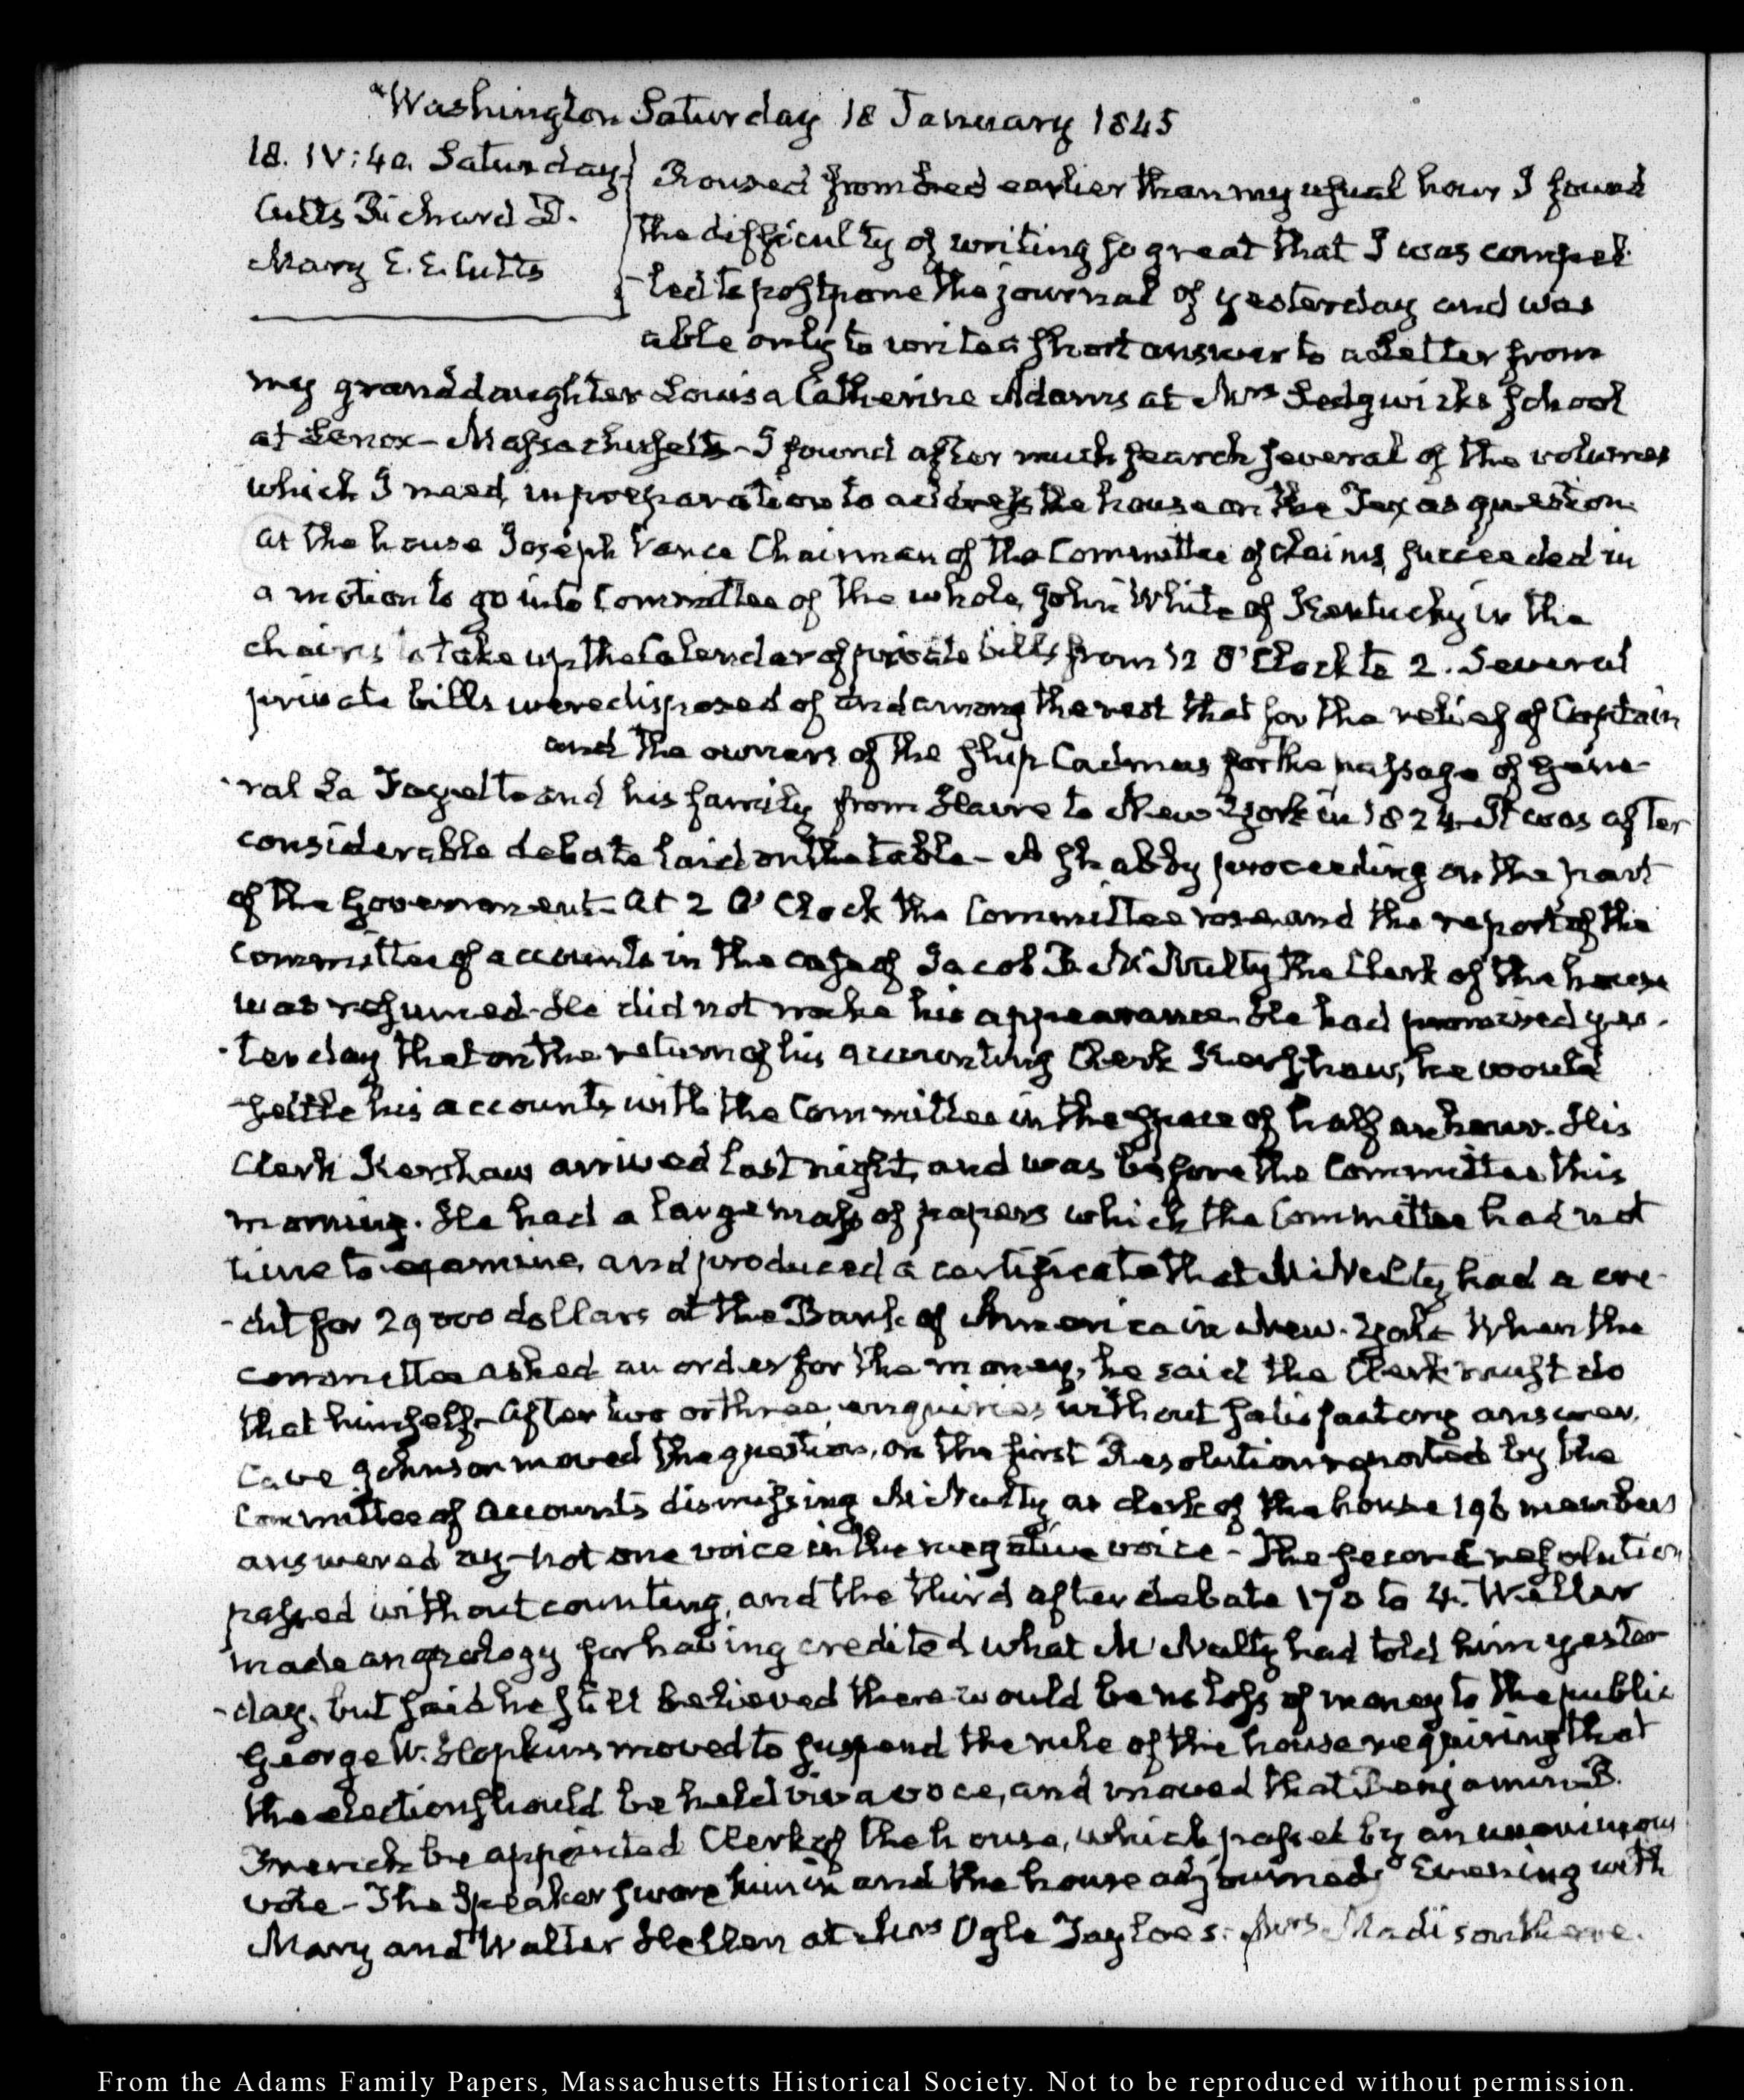 Washington Saturday 18 January 1845
18. IV:40. Saturday
Cutts Richard D.
Mary E. E. Cutts
Roused from bed earlier than my usual hour I found
the difficulty of writing so great that I was compel-
-led to postpone the journal of yesterday and was
able only to write a short answer to a letter from
my granddaughter Louisa Catherine Adams at Mrs Sedgwick's School
at Lenox - Massachusetts - I found after much search several of the volumes
which I need, in preparation to address the house on the Texas question
At the house Joseph Vance Chairman of the Committee of claims, succeeded in
a motion to go into Committee of the whole, John White of Kentucky in the
chair to take up the Calendar of private bills from 12 O'Clock to 2. Several
private bills were disposed of and among the rest that for the relief of Captain
and the owners of the ship Cadmus for the passage of Gene-
-ral La Fayette and his family from Havre to New York in 1824. It was after
considerable debate laid on the table - A shabby proceeding on the part
of the Government - At 2 O'Clock the Committee rose and the report of the
Committee of accounts in the case of Jacob B. McNulty the Clerk of the house
was resumed. He did not make his appearance. He had promised yes-
-terday that on the return of his accounting Clerk Kershaw, he would
settle his accounts with the Committee in the space of half an hour. His
Clerk Kershaw arrived last night, and was before the Committee this
morning. He had a large mass of papers which the Committee had not
time to examine, and produced a certificate that McNulty had a cre-
-dit for 29000 dollars at the Bank of America in New-York When the
committee asked an order for the money, he said the Clerk must do
that himself - After two or three enquiries without satisfactory answer,
Cave Johnson moved the question, on the first Resolution reported by the
Committee of Accounts dismissing McNulty as clerk of the house 196 members
answered ay - not one voice in the negative voice - The second resolution
passed without counting, and the third after debate 170 to 4. Weller
made an apology for having credited what McNulty had told him yester-
-day, but said he still believed there would be no loss of money to the public
George W. Hopkins moved to suspend the rule of the house requiring that
the election should be held viva voce, and moved that Benjamin B.
French be appointed Clerk of the house, which passed by an unanimous
vote - The Speaker swore him in and the house adjourned. Evening with
Mary and Walter Hellen at Mrs Ogle Tayloe's. Mrs Madison there.
From the Adams Family Papers, Massachusetts Historical Society. Not to be reproduced without permission.